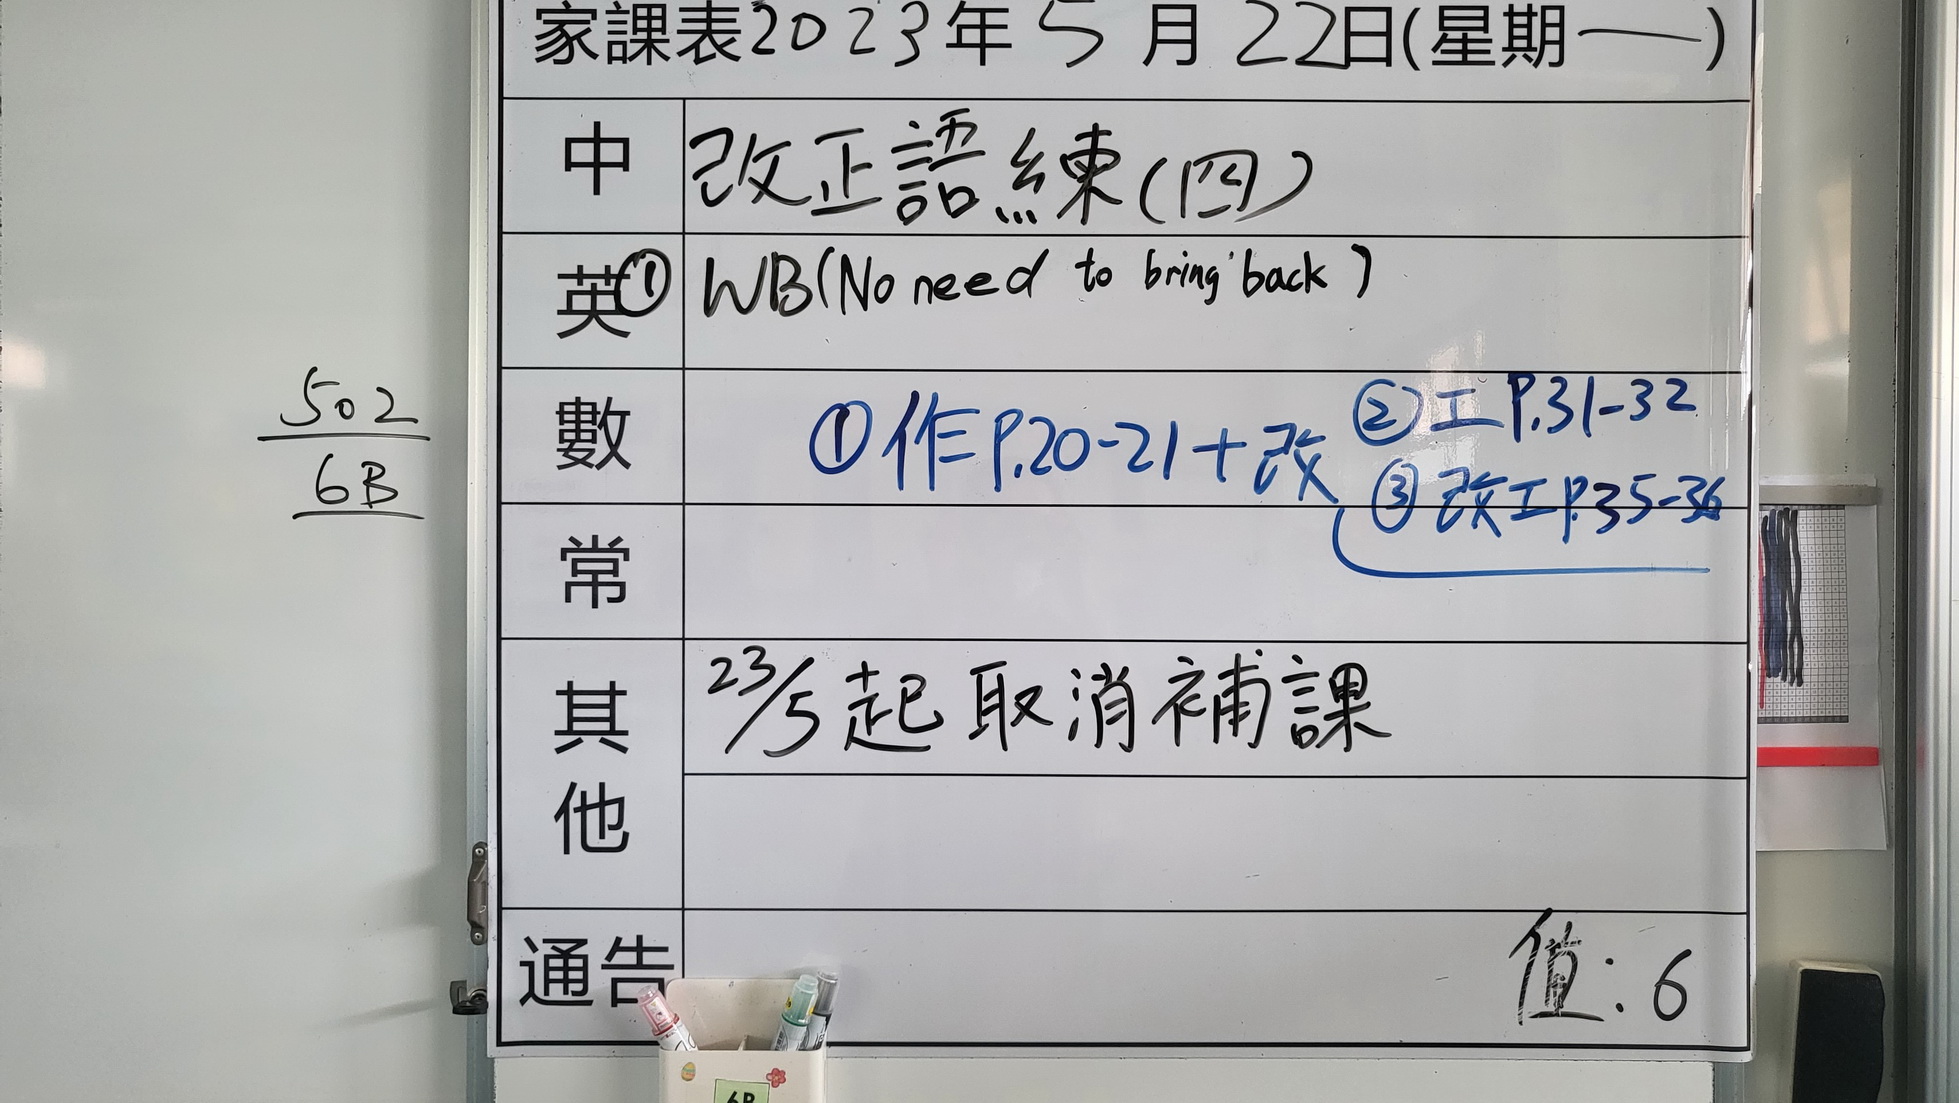 家課表2023年5月22日(星期一)
中 改正語練(四)
英 ① WB(No need to bring back)
數 ①作P.20-21+改
②工P.31-32
③改工P.35-36
502
6B
常
其他 23/5起取消補課
通告
值:6
6B